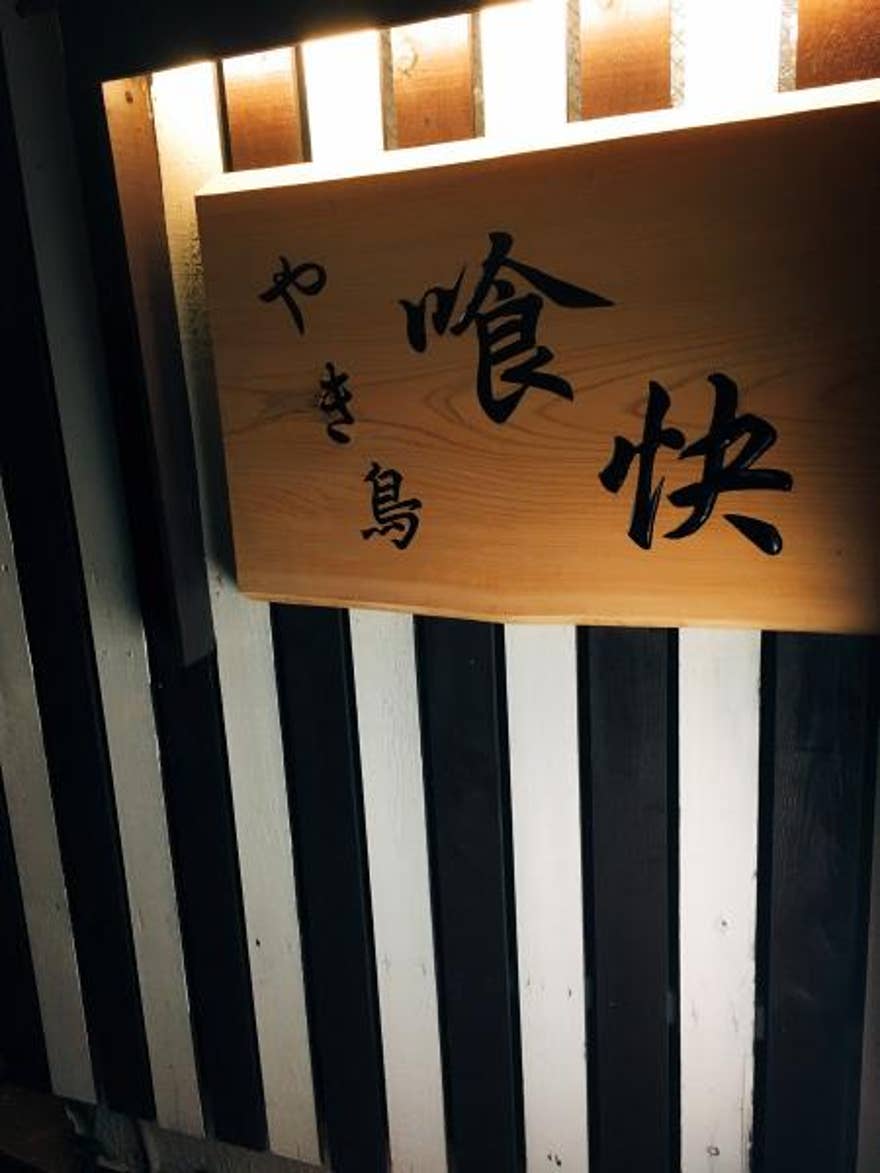 やき鳥
喰快